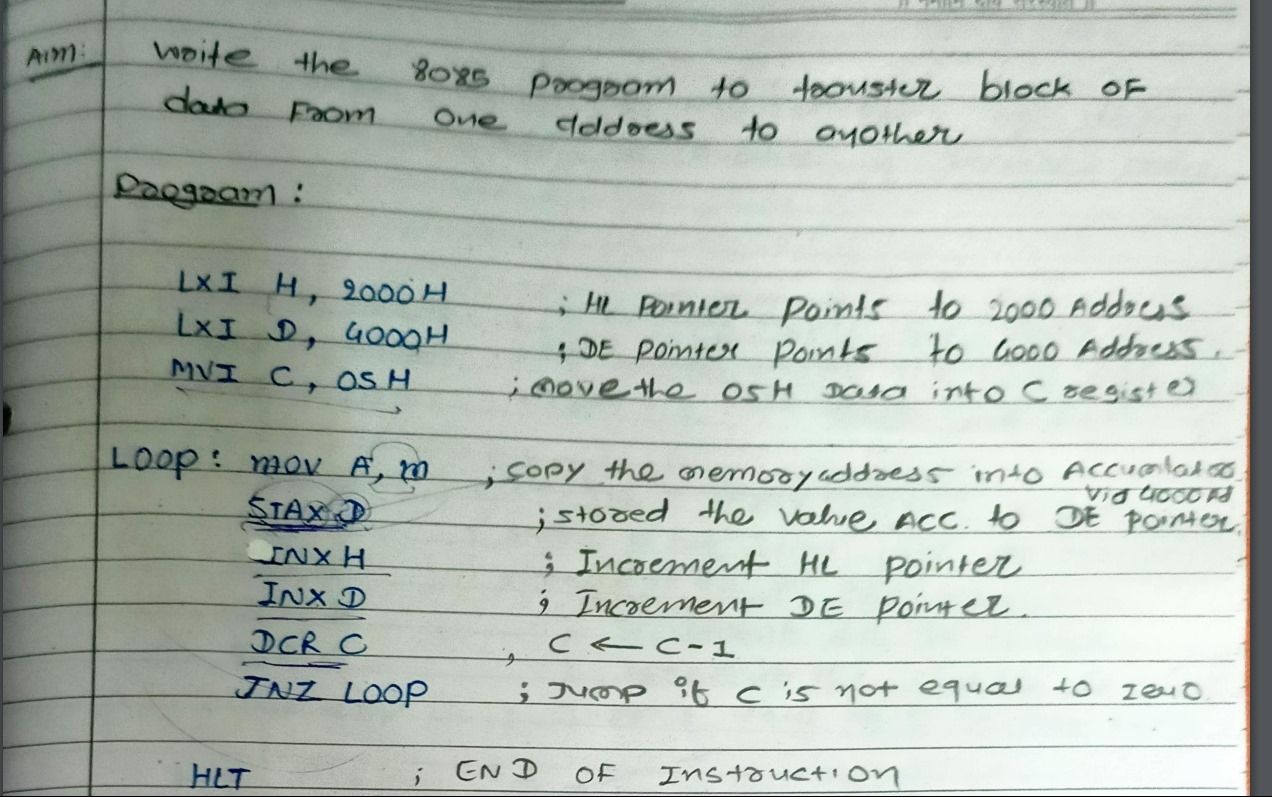 Aim: Write the 8085 Program to transfer block of
data From One Address to another
Program :
LXI H, 2000H ; HL Pointer Points to 2000 Address
LXI D, 4000H ; DE Pointer Points to 4000 Address.
MVI C, 05H ; move the 05H Data into C register
LOOP : MOV A, M ; copy the memory address into Accumulator
via 4000H
STAX D ; stored the value Acc. to DE pointer.
INX H ; Increment HL pointer
INX D ; Increment DE pointer.
DCR C , C ← C-1
JNZ LOOP ; Jump if C is not equal to zero
HLT ; END OF Instruction